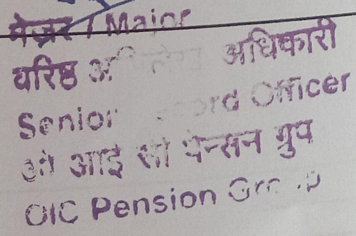 मेजर / Major
वरिष्ठ अभिलेख अधिकारी
Senior Record Officer
ओ आई सी पेन्सन ग्रुप
OIC Pension Group